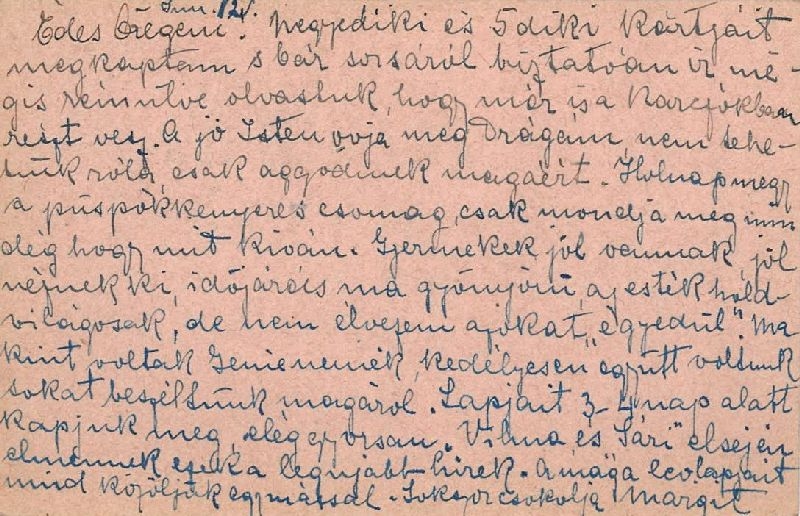 Jun. 12.
Édes Öregem! Negyediki és 5 diki kártjáit
megkaptam s bár sorsáról biztatóan ír mé-
gis remülve olvastuk, hogy már is a harcokban
részt vesz. A jó Isten óvja meg Drágám, nem tehe-
tünk róla, csak aggódunk magáért. Holnap megy
a püspökkenyeres csomag, csak mondja meg min
dég hogy mit kíván. Gyermekek jól vannak, jól
néznek ki, időjárás ma gyönyörű, az esték hold-
világosak, de nem élvezem azokat "egyedül". Ma
kint voltak Genienemék, kedélyesen együtt voltunk
sokat beszéltünk magáról. Lapjait 3-4 nap alatt
kapjuk meg, elég gyorsan. "Vilma és Sári" elsején
elmennek ezek a legujabb hirek. A maga lapjait
mind közöljük egymással. Sokszor csókolja Margit